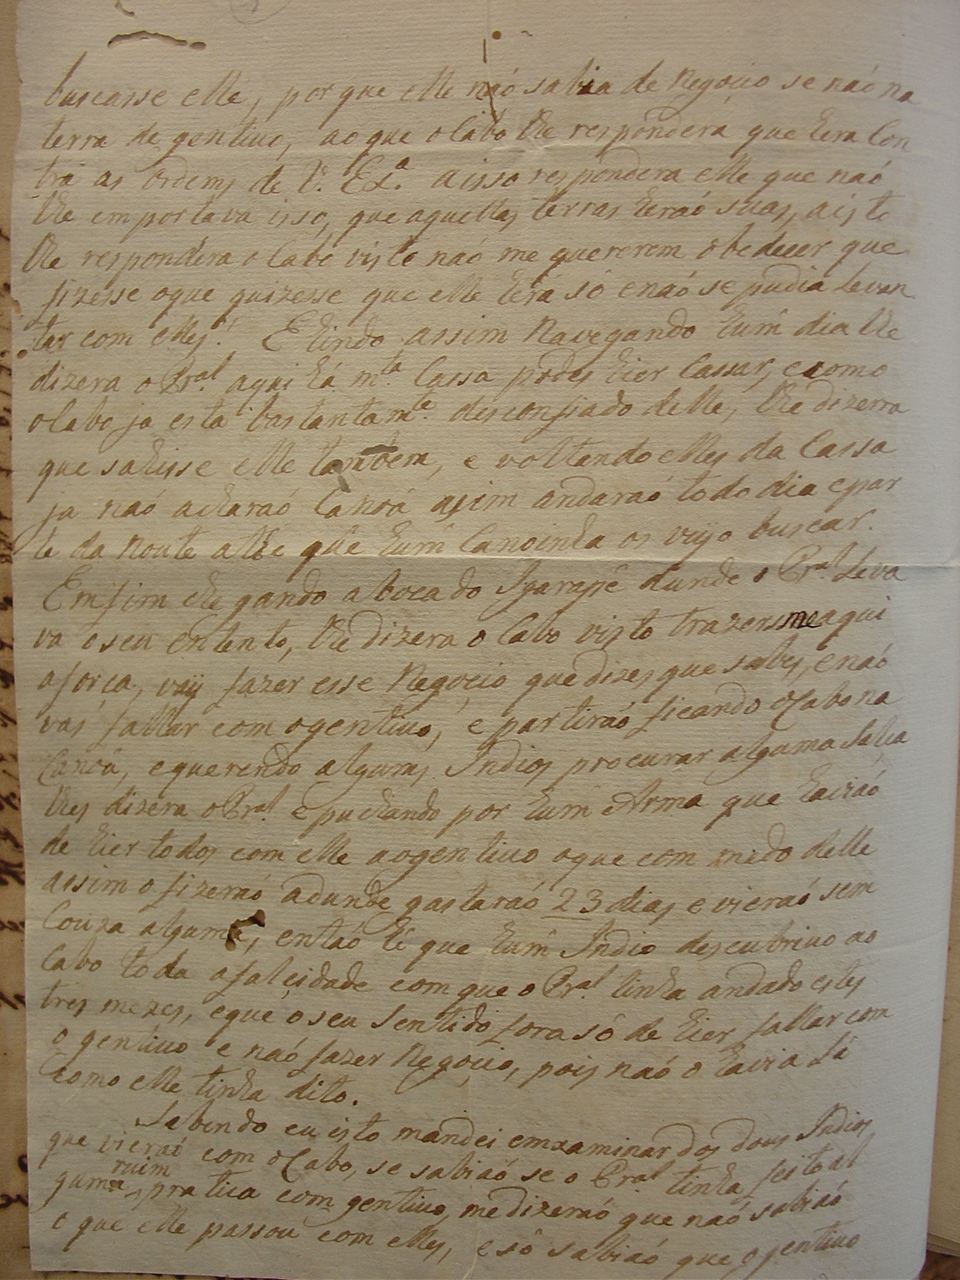 buscasse elle, por que elle naó sabia de Negocio se naó na
terra de gentiuo, ao que o Cabo lhe respondera que hera Con
tra as Ordems de V. Exª. a isso respondera elle que naó
lhe emportava isso, que aquellas terras heraó suas, a iste
lhe respondera o Cabo visto naó me quererem obedecer que
fizesse o que quizesse que elle hera só e naó se pudia Levan
tar com elles. E hindo assim Navegando hum dia lhe
dizera o Pral. aqui há mta. Cassa podes hier Cassar, e como
o Cabo ja está bastantamte. desconfiado delle, lhe dizerra
que sahisse elle tambem, e voltando elles da Cassa
ja naó acharaó Canoá asim andaraó todo dia e par
te da Noute athe que hum Canoinha os vijo buscar.
Emfim chegando a boca do Igarapé dunde o Pral. Leva
va o seu entento, lhe dizera o Cabo visto trazersme aqui
a força, vaij fazer esse Negocio que dizes que sabes, e naó
vás fallar com o gentiuo, e partiraó ficando o Cabo na
Canoâ, e querendo algums Indios procurar alguma Salsa
lhes dizera o Pral. e puchando por hum Arma que haviaó
de hier todos com elle ao gentiuo o que com medo delle
assim o fizeraó adunde gastaraó 23 dias e vieraó sem
Couza alguma, entaó hé que hum Indio descubriuo ao
Cabo toda a falcidade com que o Pral. tinha andado estes
tres mezes, e que o seu Sentido fora só de hier fallar com
o gentiuo e naó fazer Negocio, pois naó o havia lá
como elle tinha dito.
Sabendo eu isto mandei emxaminar dos dous Indios
que vieraó com o Cabo, se sabiaó se o Pral. tinha feito al
guma ruim pratica com gentiuo, me dizeraó que naó sabiaó
o que elle passou com elles, e só sabiaó que o gentiuo